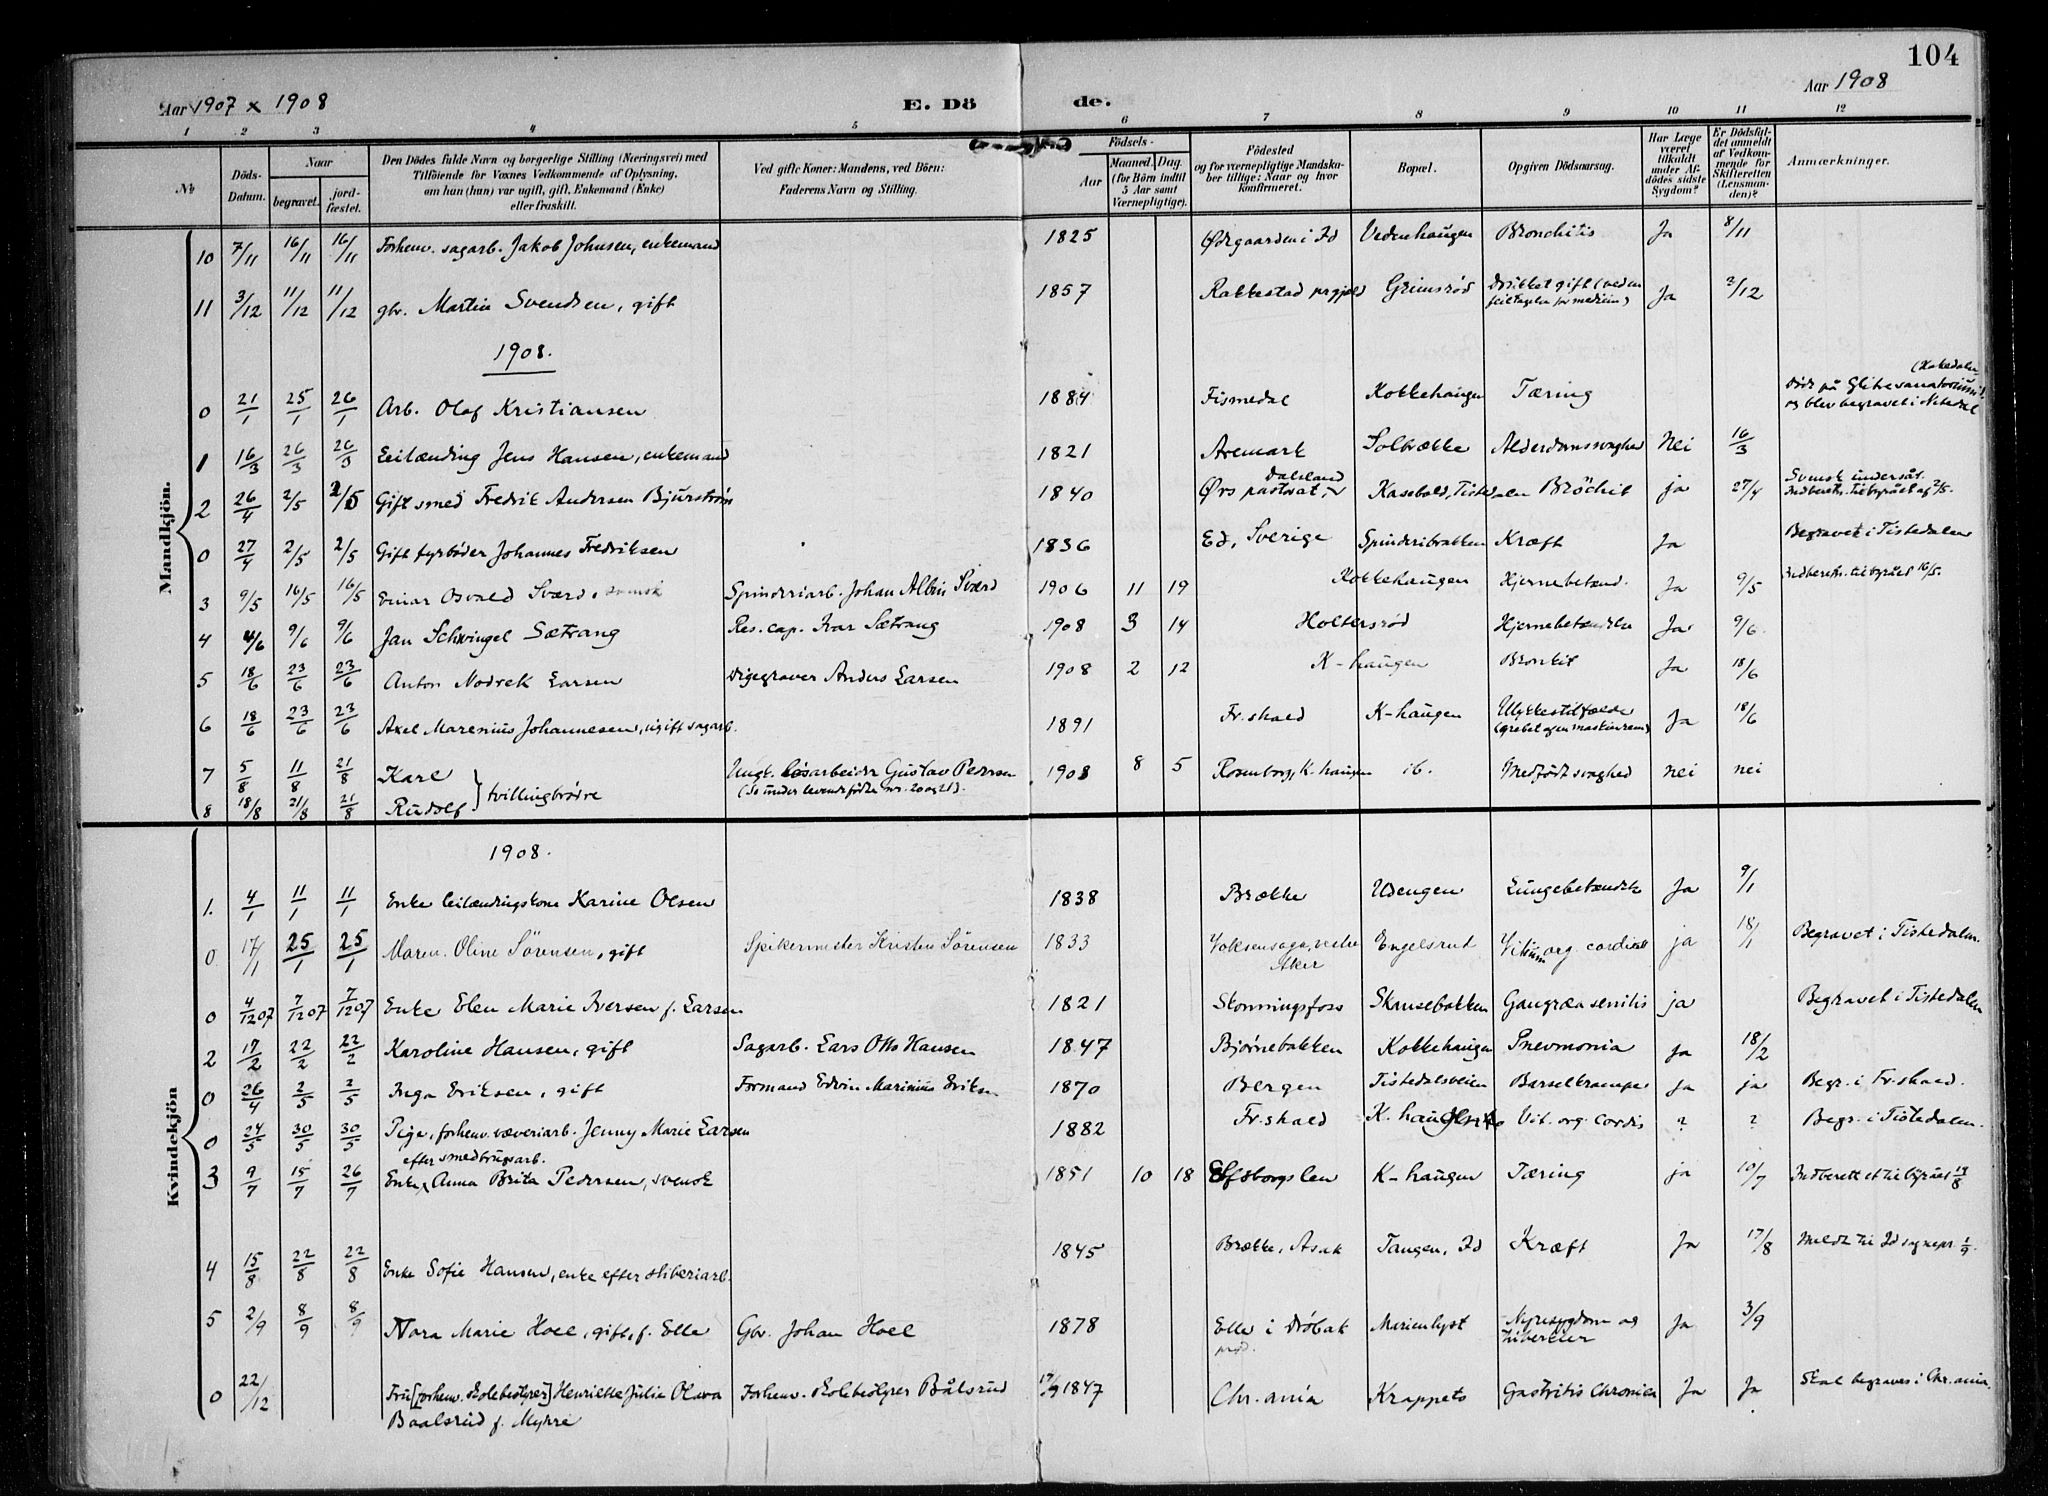 104
Aar 1907 x 1908 E. Dö de. Aar 1908
1 2 3 4 5 6 7 8 9 10 11 12
No Döds-Datum. Naar begravet. jord-fæstet. Den Dödes fulde Navn og borgerlige Stilling (Næringsvei) med Tilföiende for Voxnes Vedkommende af Oplysning, om han (hun) var ugift, gift, Enkemand (Enke) eller fraskilt. Ved gifte Koner: Mandens, ved Börn: Faderens Navn og Stilling. Födsels- Aar Maaned. Dag. (for Börn indtil 5 Aar samt Værnepligtige). Födested og for værnepligtige Mandskaber tillige: Naar og hvor Konfirmeret. Bopæl. Opgiven Dödsaarsag. Har Læge været tilkaldt under Afdödes sidste Sygdom? Er Dödsfaldet anmeldt af Vedkommende for Skifteretten (Lensmanden)? Anmærkninger.
Mandkjön.
10 7/11 16/11 16/11 Forhenv. sagarb. Jakob Johnsen, enkemand 1825 Ødegaarden i Id Vedenhaugen Bronchitis Ja 8/11
11 3/12 11/12 11/12 gbr. Martin Svendsen, gift 1857 Rakkestad prgjeld Grimsrød Drukket gift (ved en feiltagelse for medicin) Ja 3/12
1908.
0 21/1 25/1 26/1 Arb. Olaf Kristiansen 1884 Fismedal Kokkehaugen Tæring Døde på Glitre sanatorium (Hakedalen) og blev begravet i Nitedal
1 16/3 26/3 26/3 Leilænding Jens Hansen, enkemand 1821 Aremark Solbrække Alderdomssvaghed Nei 16/3
2 26/4 2/5 2/5 Gift smed Fredrik Andersen Bjurstrøm 1840 Ørs pastorat, Dalsland Kasebold, Tistedalen Brochit ja 27/4 Svensk undersåt. Indberet. til byrået 2/5.
0 27/4 2/5 2/5 Gift fyrbøder Johannes Fredriksen 1836 Ed, Sverige Spinderibakken Kræft Ja Begravet i Tistedalen
3 9/5 16/5 16/5 Einar Osvald Sværd, svensk Spinderiarb. Johan Albin Sværd 1906 11 19 Kokkehaugen Hjernebetænd. Ja 9/5 Indberet. til byrået 16/5.
4 4/6 9/6 9/6 Jan Schwingel Sætrang Res. cap. Ivar Sætrang 1908 3 14 Holtersrød Hjernebetændelse Ja 9/6.
5 18/6 23/6 23/6 Anton Nodvek Larsen Digegraver Anders Larsen 1908 2 12 K-haugen Bronkit Ja 18/6
6 18/6 23/6 23/6 Axel Marenius Johannesen, ugift sagarb. 1891 Fr.shald K-haugen Ulykkestilfælde (grebet af en maskinrem) Ja 18/6
7 5/8 11/8 21/8 Karl } tvillingbrødre Ungk. løsarbeider Gustav Pedersen (Se under levende fødte nr. 20 og 21). 1908 8 5 Rosenborg, K.haugen ib. Medfødt svaghed nei nei
8 18/8 21/8 21/8 Rudolf
Kvindekjön
1908.
1. 4/1 11/1 11/1 Enke leilændingskone Karine Olsen 1838 Brække Udengen Lungebetændelse Ja 9/1
0 17/1 25/1 25/1 Maren Oline Sørensen, gift Spikermester Kristen Sørensen 1833 Voksensaga, vestre Aker Engelsrud Vitium org. cordis ja 18/1 Begravet i Tistedalen.
0 4/1207 7/1207 7/1207 Enke Elen Marie Iversen f. Larsen 1821 Skonningsfoss Skansebakken Gangræa senilis ja Begravet i Tistedalen
2 17/2 22/2 22/2 Karoline Hansen, gift Sagarb. Lars Otto Hansen 1847 Bjørnebakken Kokkehaugen Pnevmonia Ja 18/2
0 26/4 2/5 2/5 Inga Eriksen, gift Formand Edvin Marinius Eriksen 1870 Bergen Tistedalsveien Barselkrampe Ja ja Begr. i Fr.shald.
0 24/5 30/5 30/5 Pige, forhenv. væveriarb. Jenny Marie Larsen 1882 Fr.shald K. haugen Vit. org. cordis ? ? Begr. i Tistedalen.
3 9/7 15/7 26/7 Enke efter smedbrugsarb. Anna Brita Pedersen, svensk 1851 10 18 Elfsborgs len K-haugen Tæring ja 10/7 Indberettet til byrået 13/8
4 15/8 22/8 22/8 Enke Sofie Hansen, enke efter sliberiarb. 1845 Brække, Asak Tangen, Id Kræft Ja 17/8 Meldt til Id sognepr. 1/9.
5 2/9 8/9 8/9 Nora Marie Hoel, gift, f. Elle Gbr. Johan Hoel 1878 Elle i Drøbak prgd. Marienlyst Nyresygdom og tuberkler Ja 3/9
0 22/12 Fru [forhenv. skolebestyrer] Henriette Julie Olava Baalsrud f. Myhre Forhenv. skolebestyrer Bålsrud 17/9 1847 Chr.ania Krappeto Gastritis Chronica Ja Ja Skal begraves i Chr.ania.